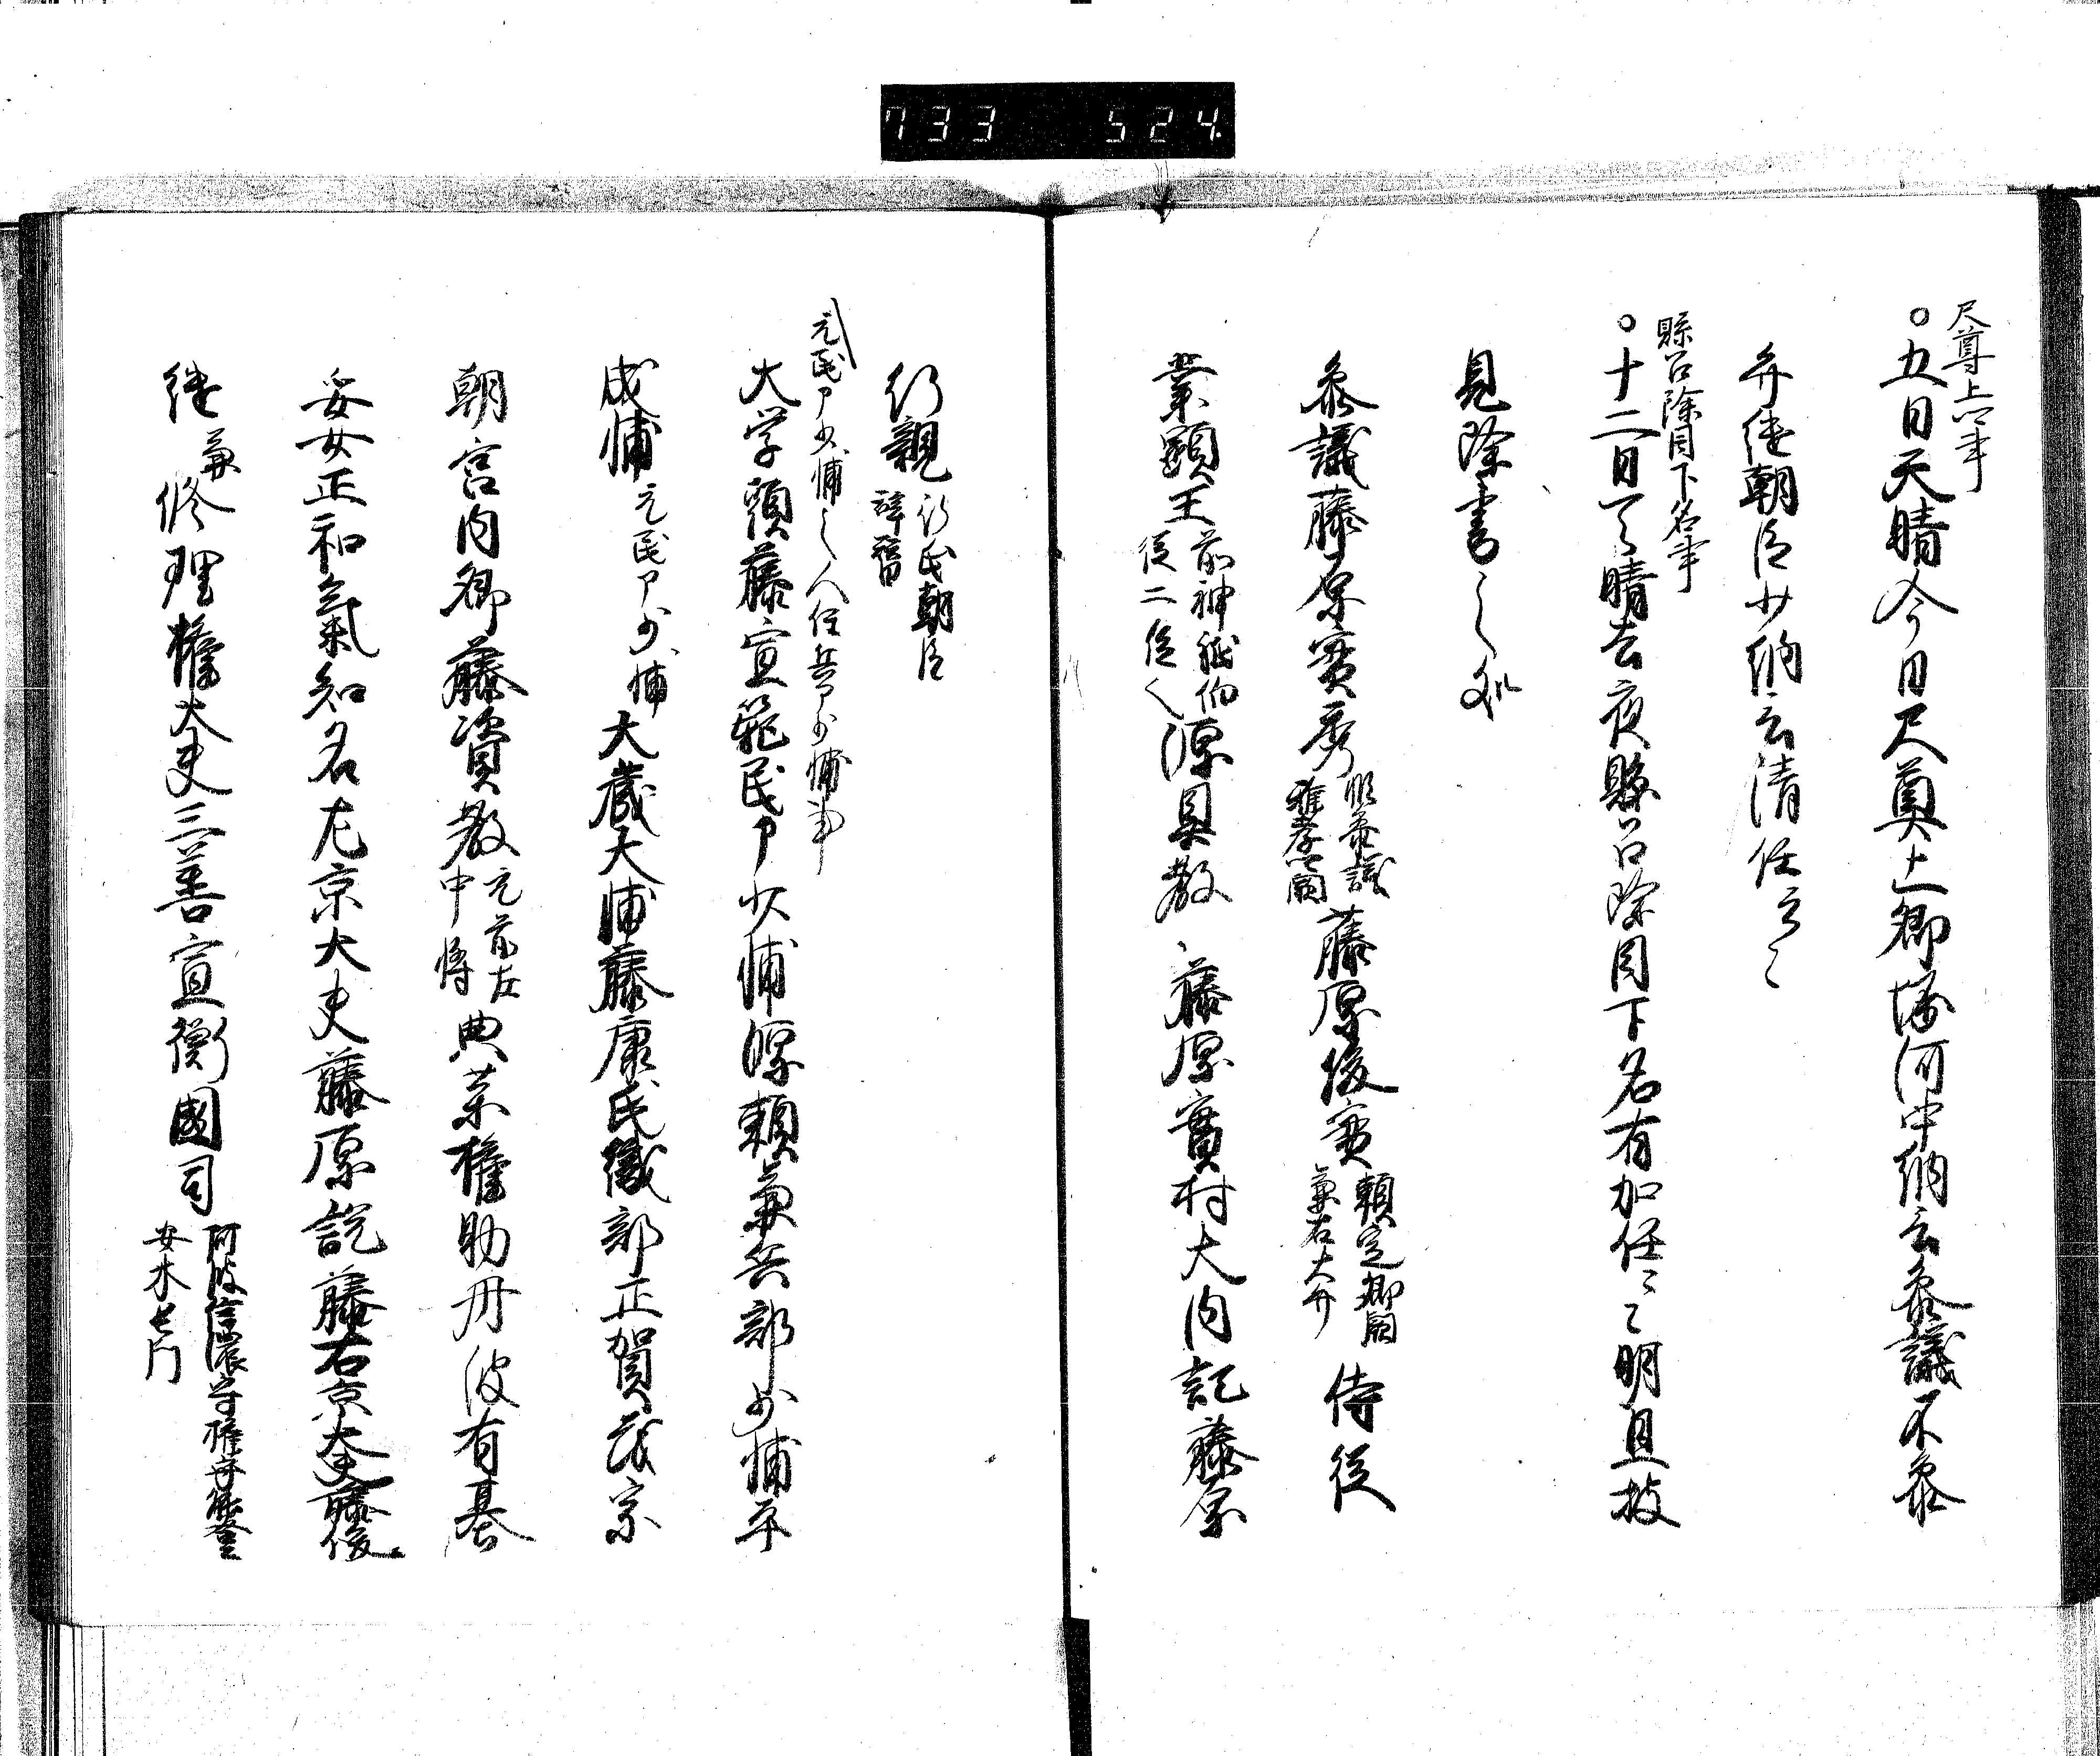 733 524
尺尊上卿事
○五日天晴今日尺奠上卿堀河中納言参議不参
弁継朝臣少納言清任云々
県召除目下名事
○十二日天晴去夜縣召除目下名有加任云々明旦披
見除書之処
参議藤原実秀
雅孝闕
藤原俊実
頼定卿闕
兼右大弁
侍従
業顕王
前神祇伯
従二位
源具教
藤原実村大内記藤原
行親
行氏朝臣
辞替
元民ア少輔之人任兵ア少輔事
大学頭藤宣範民ア少輔源頼兼兵部少輔平
成輔
元民ア少輔
大蔵大輔藤康氏織部正賀茂宗
朝宮内卿藤資教
元前左
中将
典薬権助丹波有基
采女正和氣知名左京大夫藤原説藤右京大夫藤俊
継
兼
修理権大夫三善宣衡國司
阿波信濃守権守能登
安木長門